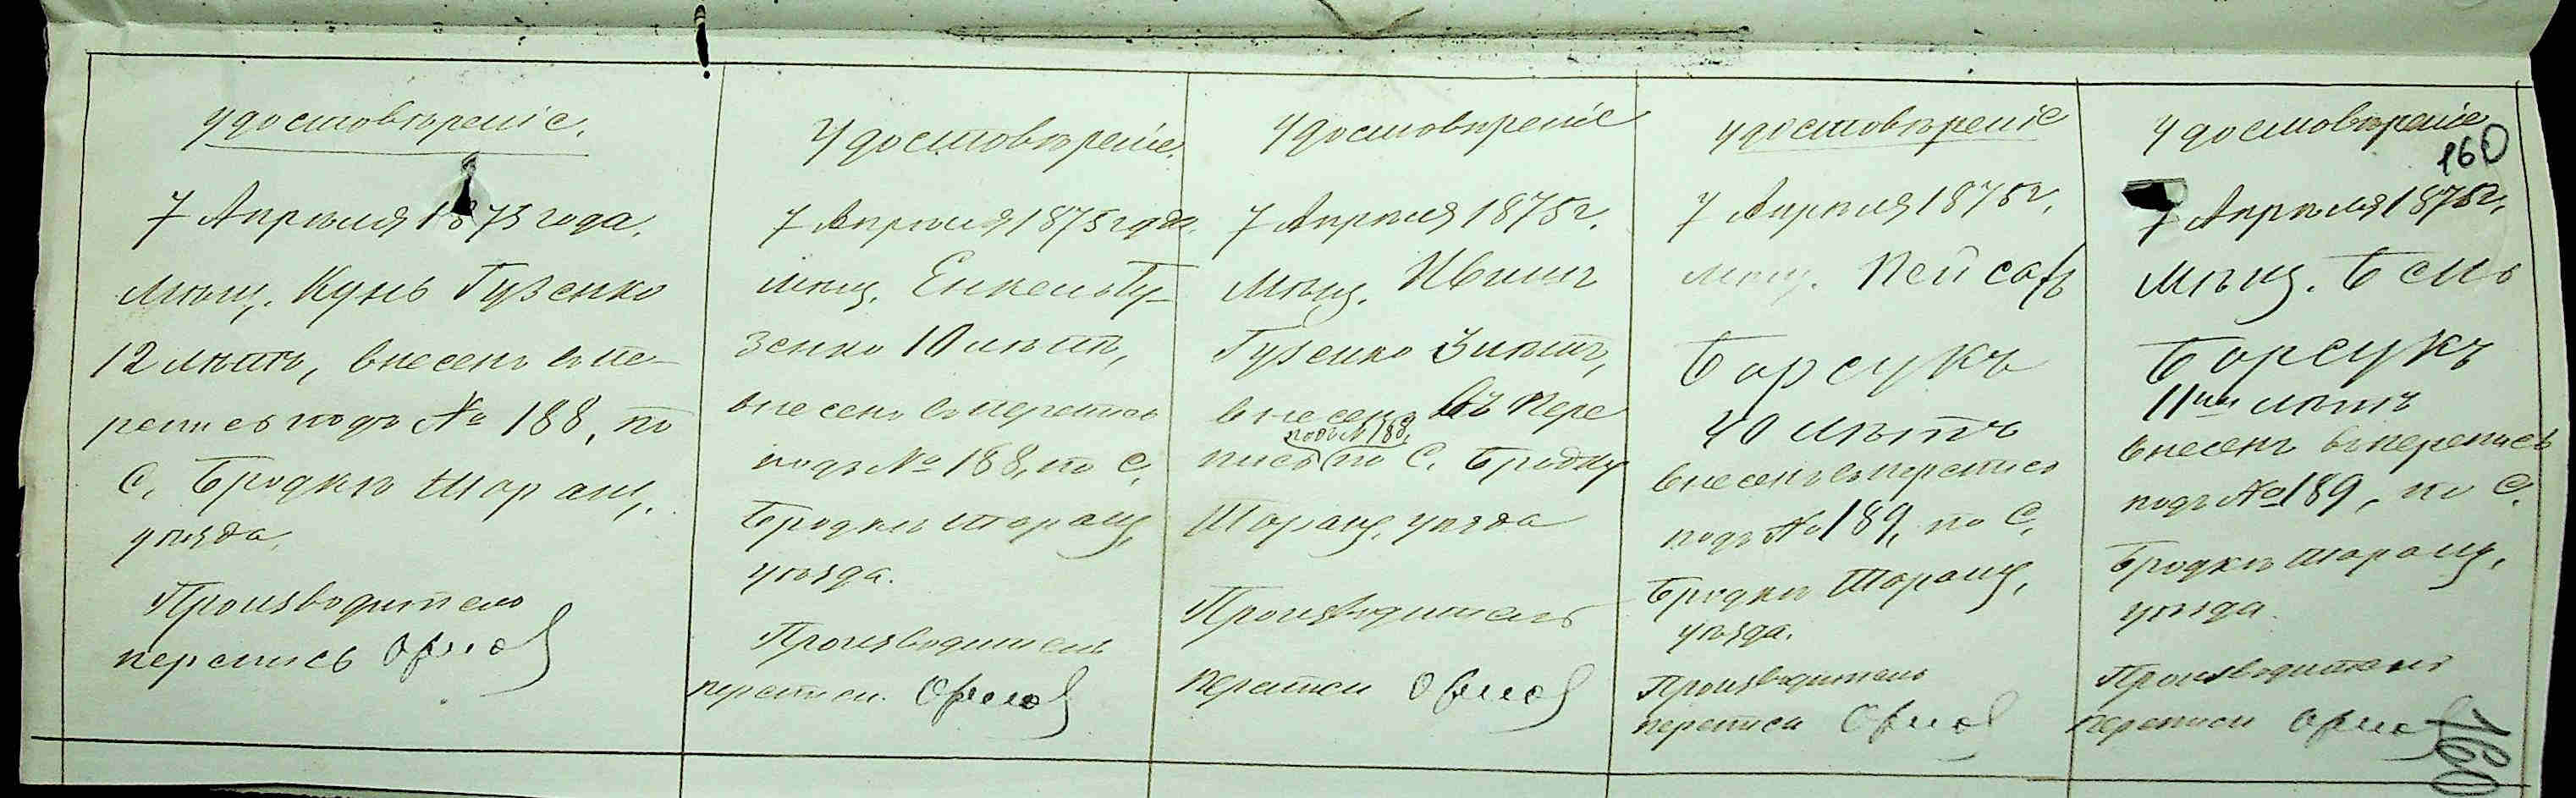 Удостовѣреніе.
7 Апрѣля 1875 года.
мѣщ. Кунь Гузенко
12 лѣтъ, внесенъ въ пе-
репись подъ № 188, по
С. Бродкѣ Шоращ.
уѣзда.
Производитель
перепись
Удостовѣреніе.
7 Апрѣля 1875 года.
мѣщ. Енкель Гу-
зенко 10 лѣтъ,
внесенъ въ перепись
подъ № 188, по С.
Бродкѣ Шоращ.
уѣзда.
Производитель
переписи.
Удостовѣреніе
7 Апрѣля 1875 г.
мѣщ.
Гузенко 3 лѣтъ,
внесенъ въ пере
подъ № 188,
пись по С. Бродку
Шоращ. уѣзда
Производитель
переписи
Удостовѣреніе
7 Апрѣля 1875 г.
мѣщ. Пейсахъ
Борсукъ
40 лѣтъ
внесенъ въ перепись
подъ № 189, по С.
Бродкѣ Шоращ.
уѣзда.
Производитель
переписи
Удостовѣреніе
160
7 Апрѣля 1875 г.
мѣщ.
Борсукъ
11ти лѣтъ
внесенъ въ перепись
подъ № 189, по С.
Бродкѣ Шоращ.
уѣзда.
Производитель
переписи
160